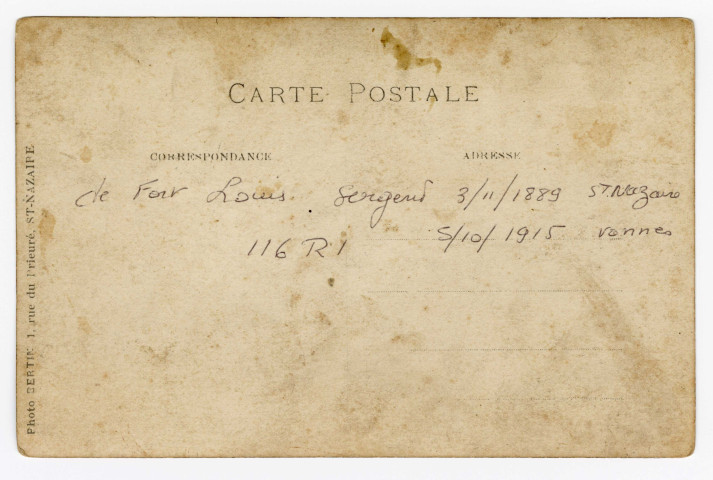 CARTE POSTALE
CORRESPONDANCE ADRESSE
de Fort Louis. Sergent 3/11/1889 St Nazaire
116 RI 5/10/1915 Vannes
Photo BERTIN 1, rue du Prieuré, ST-NAZAIRE